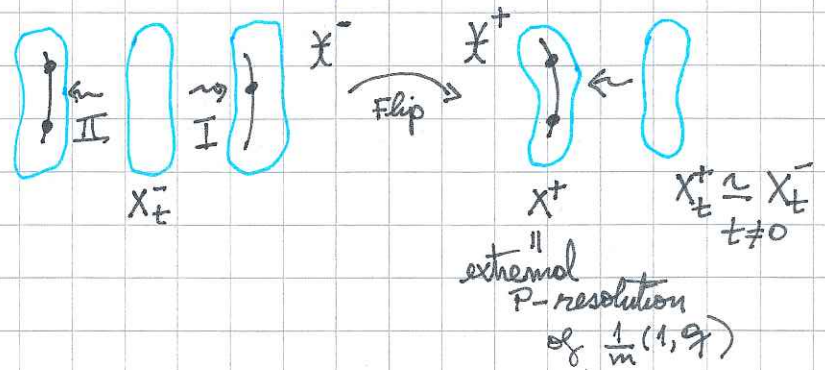 𝒳⁻ 𝒳⁺
II I Flip
X_t^- X⁺ X_t^+ ≃ X_t^-
t≠0
||
extremal
P-resolution
of 1/m (1,q)